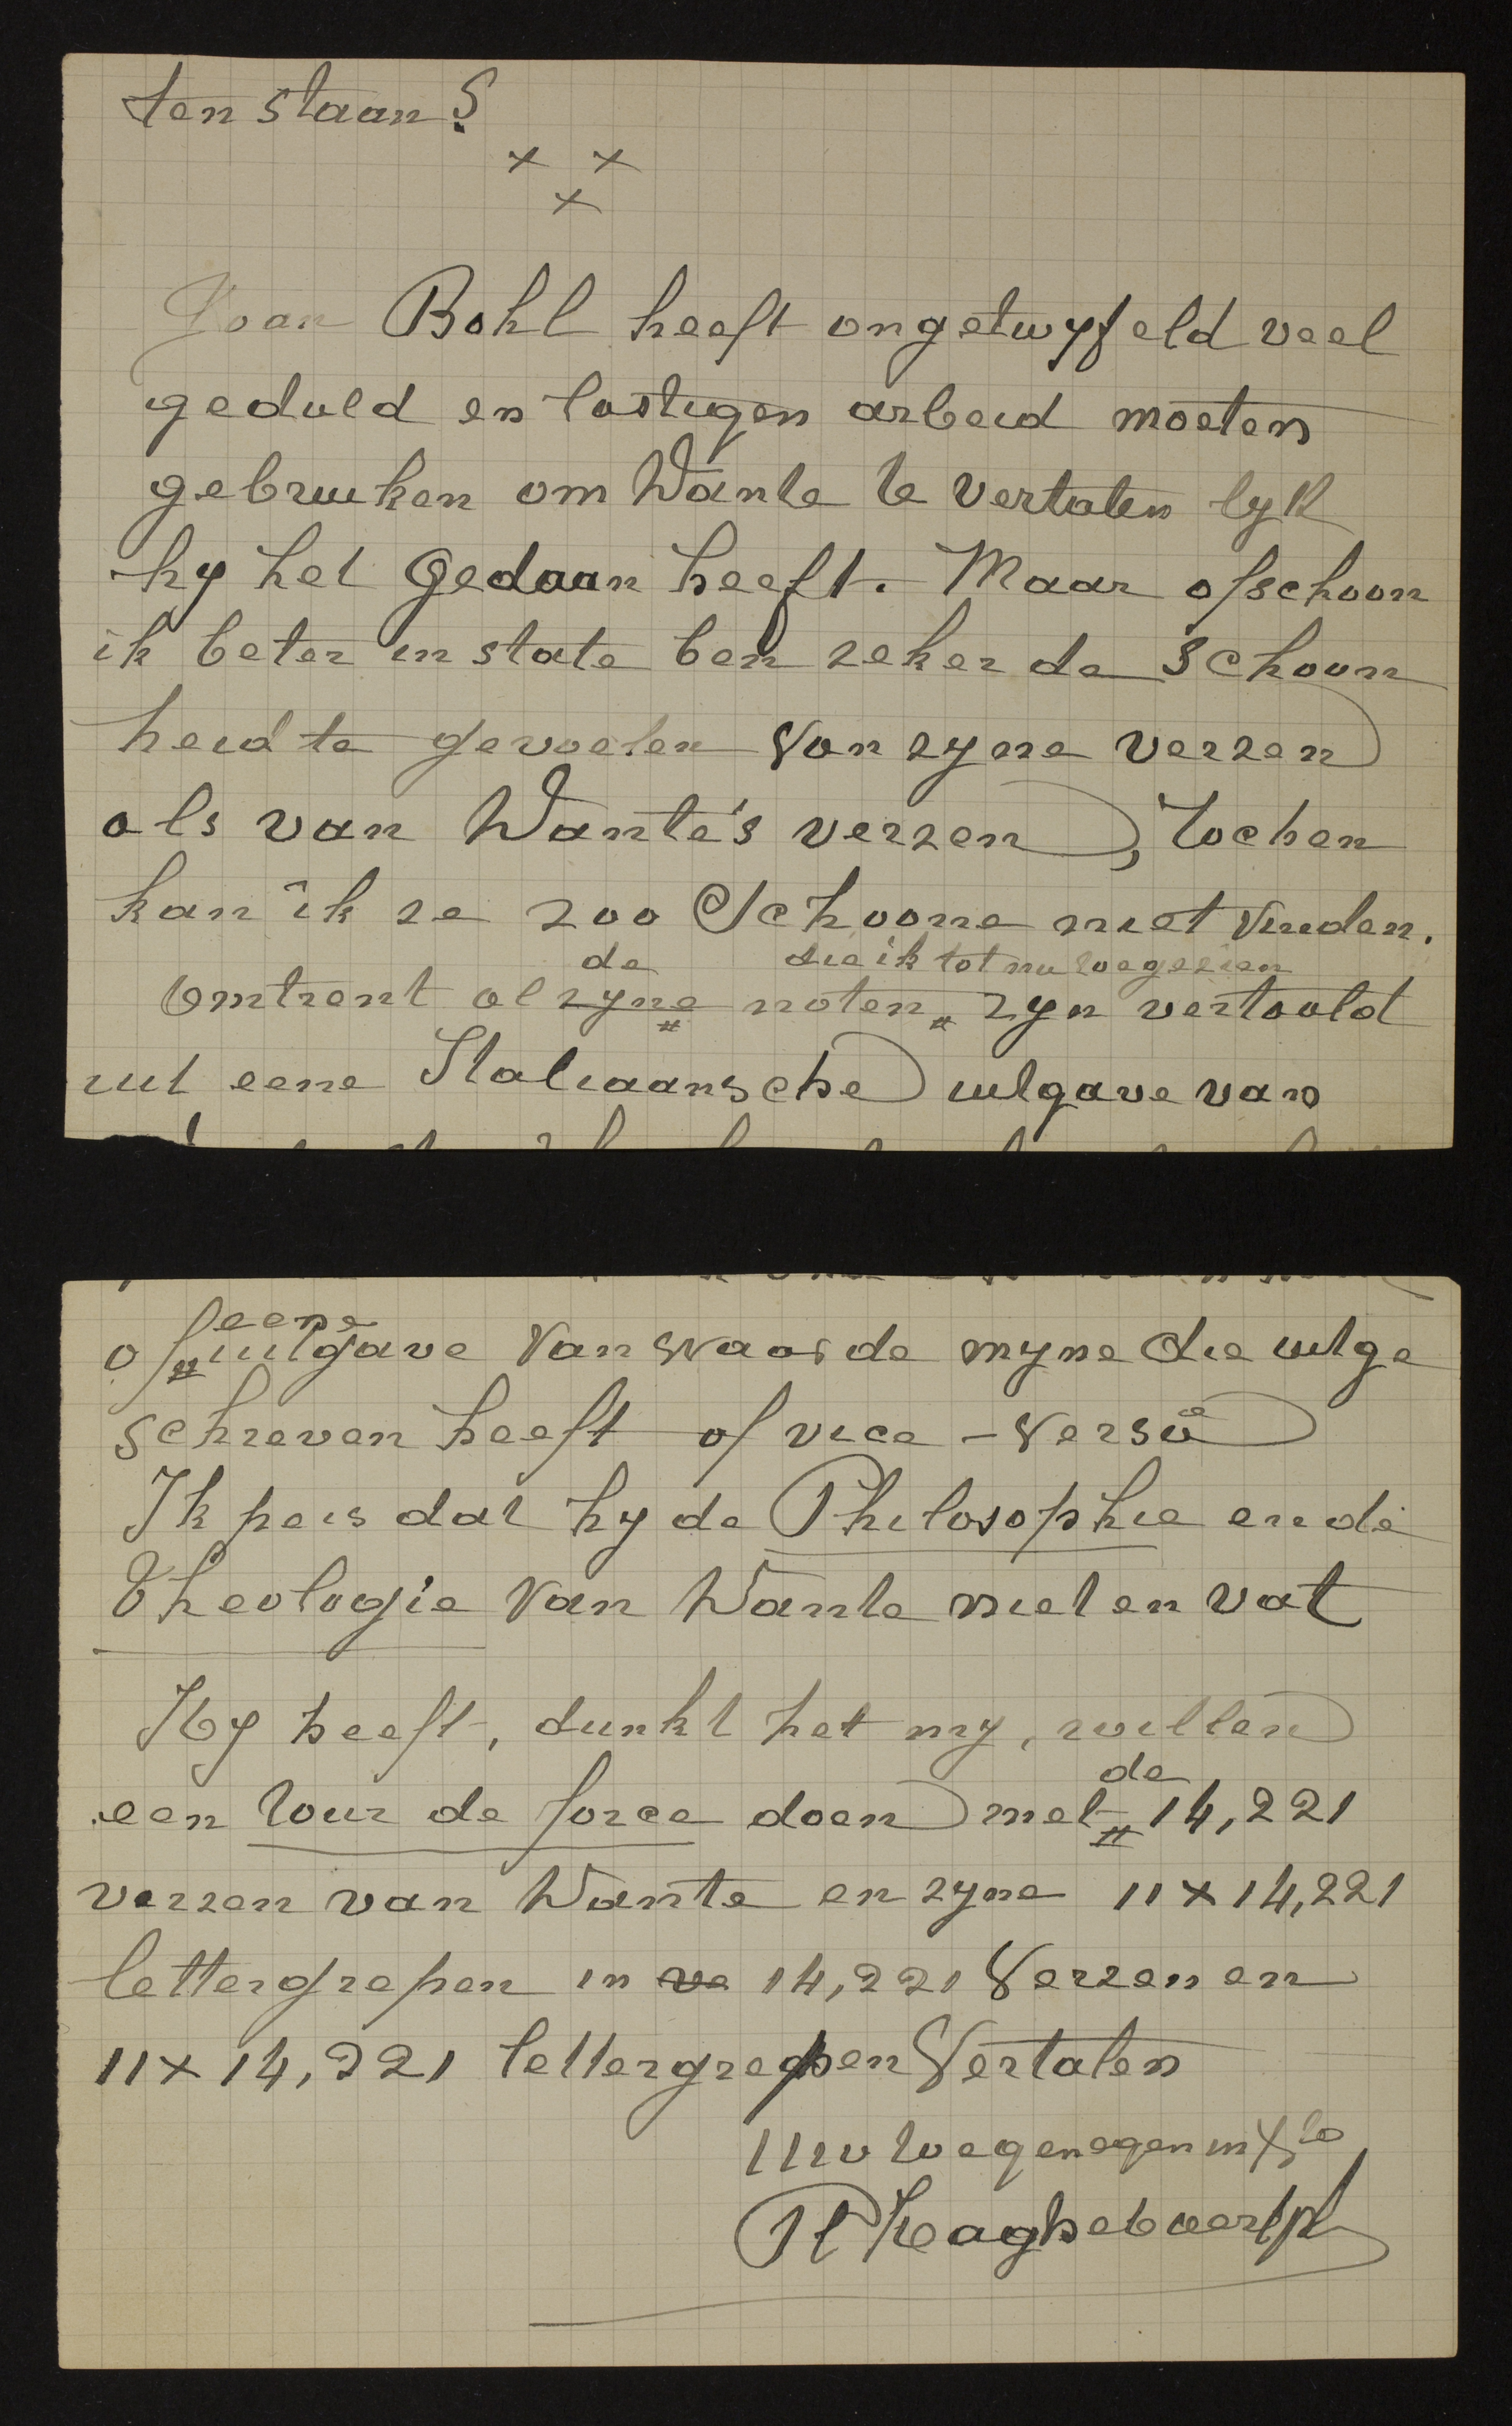 ten staan?
x x
x
Joan Bohl heeft ongetwyfeld veel
geduld en lastigen arbeid moeten
gebruiken om Dante te vertalen lyk
hy het gedaan heeft. Maar ofschoon
ik beter in state ben zeker de schoon
heid te gevoelen van zyne verzen
als van Dante's verzen, toch en
kan ik ze zoo schoone niet vinden.
de die ik tot nu toe gezien
Omtrent al zyne noten zyn vertaald
uit eene Italiaansche uitgave van
eene
of uitgave van waar de myne die uitge
schreven heeft of vice-versa
Ik peis dat hy de Philosophie en de
Theologie van Dante niet en vat
Hy heeft, dunkt het my, willen
de
een tour de force doen met 14,221
verzen van Dante en zyne 11 x 14,221
lettergrepen in ve 14,221 verzen en
11 x 14,221 lettergrepen vertalen
Uw toegenegen in Xto